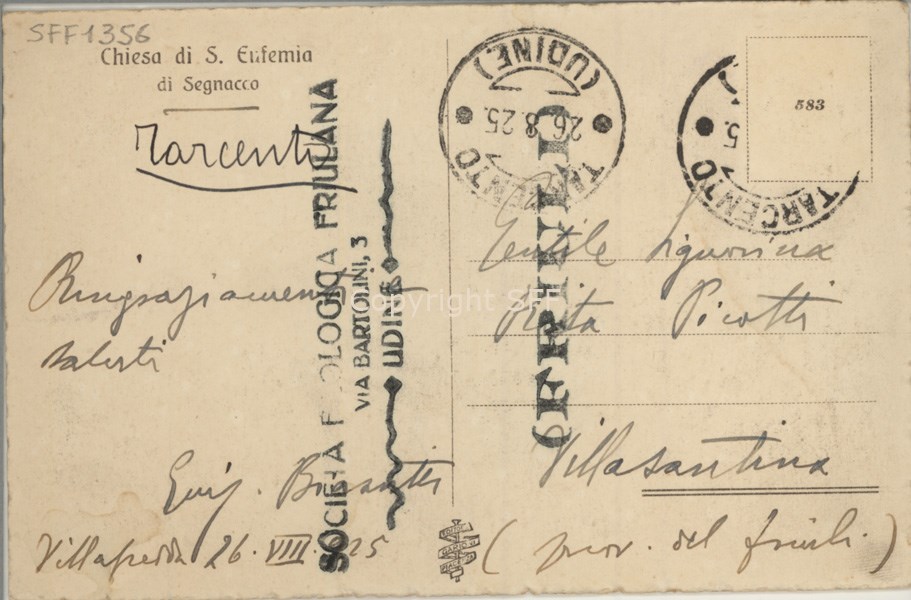 SFF1356
Chiesa di S. Eufemia
di Segnacco
Tarcento
Ringraziamenti
saluti
Luig.
Villafredda 26.VIII.925
SOCIETÀ F OLOGICA FRIULANA
VIA BARTOLINI, 3
UDINE
TARCENTO
26.8.25.
(UDINE)
(FRIULI)
583
TARCENTO
5.
Gentile Signorina
Rita Picotti
Villasantina
(prov. del friuli.)
Copyright SFF